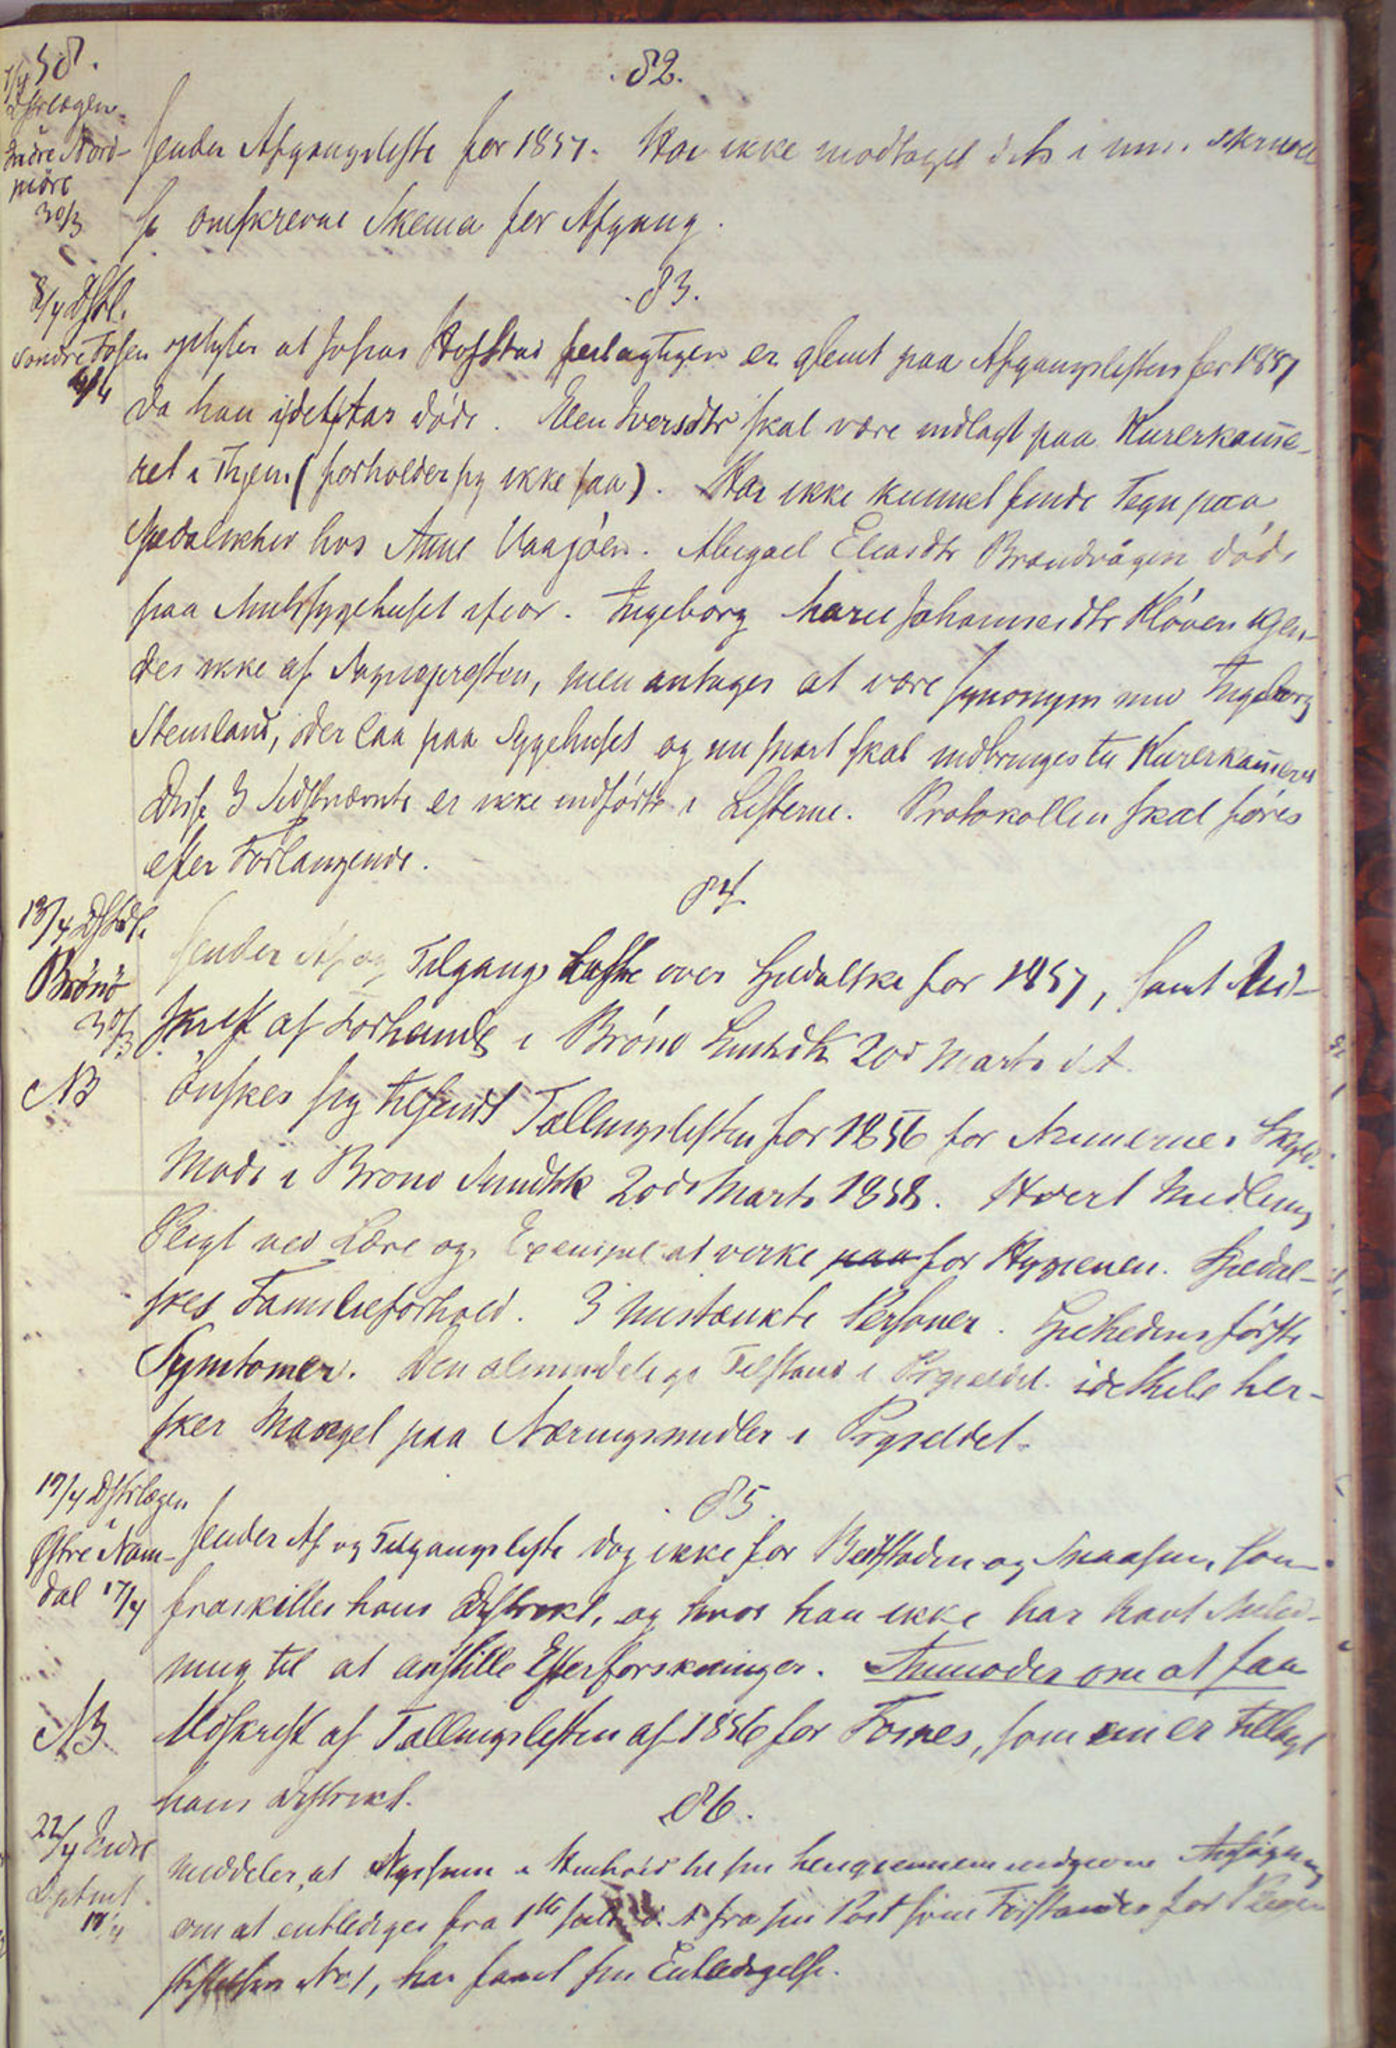 58.
82.
7/4
Dstrlægen
Indre Nord-
möre
30/3
sender Afgangsliste for 1857. Har ikke modtaget dets i min. skrivelse
omskrevne Skema for Afgang.
83.
8/4 Dstrl.
Søndre Fosen
oplyser at Johan Hofstad feilagtigen er glemt paa Afgangslisten for 1857
da han i det Aar døde. Elen Iversdtr skal være indlagt paa Kurerkamme-
ret i Thjem (forholder sig ikke saa). Har ikke kunnet finde Tegn paa
Spedalskhed hos Anne Vaajöen. Abigael Eliasdtr Brandvågen døde
paa Amtssygehuset ifior. Ingeborg Marie Johannesdtr Kløven kjen-
des ikke af Sognepresten, men antages at være synonym med Ingeborg
Stensland, der laa paa Sygehuset og nu snart skal indbringes til Kurerkammeret
Disse 3 Sidstnævnte er ikke indførte i Listerne. Protokollen skal føres
efter Forlangende.
84.
13/4 Dstrl.
Brönö
30/3
NB
sender Af og Tilgangs Liste over Spedalske for 1857, samt Ud-
skrift af Forhandl. i Brönö Sundhk 20de Marts d. A.
önskes sig tilsendt Tællingslisten for 1856 for
Møde i Brönö Sundhk 20de Marts 1858. Hvert Medlems
Pligt ved Lære og Exempel at virke for Hygienen. Spedal-
skes Familieforhold. 3 mistænkte Personer. Sphedens første
Symtomer. Den almindelige Tilstand i Prgjeldet. idethele her-
sker Mangel paa Næringsmidler i Prgjeldet.
85.
17/4 Dstrlægen
i
Østre Nam-
dal 17/4
NB
sender Af og Tilgangsliste dog ikke for Beitstaden og Snaasen, som
fraskilles hans Distrikt, og hvor han ikke har havt Anled-
ning til at anstille Efterforskninger. Anmoder om at faa
Udskrift af Tællingslisten af 1856 for Fosnes, som nu er tillagt
hans Distrikt.
86.
22/4 Indre
Dptmt.
meddeler, at i Henhold til sin hergjennem indgivne Ansøgning
om at entlediges fra 1ste Juli d. A. fra sin Post som Forstander for Pleie-
stiftelsen No 1, har faaet sin Entledigelse.